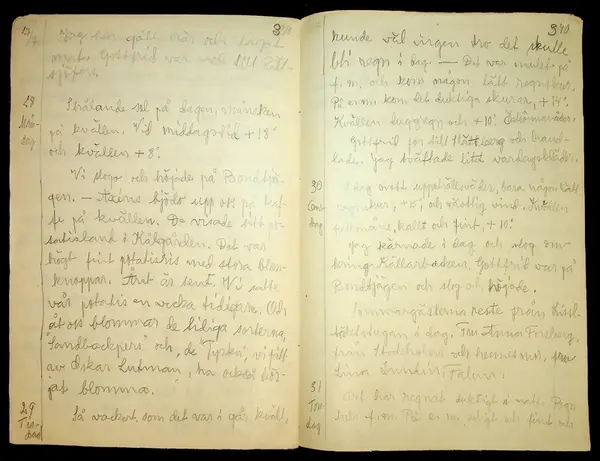 340
Jag har gått här och
mat. Gottfrid var med till
28
Mån-
dag
Strålande sol på dagen, månsken
på kvällen. Vid middagstid + 18°
och kvällen + 8°.
Vi slog och höjade på Bondtjä-
gen. — bjödo upp oss på kaf-
fe på kvällen. De visade sitt po-
tatisland i Kålgården. Det var
högt fint potatisris med stora blom-
knoppar. Året är sent. Vi satte
vår potatis en vecka tidigare. Och
åt oss blommar de tidiga sorterna,
"Sandbackpärs" och, de "Tyska", vi fått
av Oskar, ha också bör-
jat blomma.
29
Tis-
dag
Så vackert, som det var i går kväll,
340
kunde väl ingen tro det skulle
bli regn i dag. — Det var mulet på
f. m. och kom någon lätt regnskur.
På e. m. kom det duktiga skurar, + 14°.
Kvällen duggregn och + 10°.
Gottfrid for till och hand-
lade. Jag tvättade litet vardagskläder.
30
Ons-
dag
I dag svått uppehållsväder, bara någon lätt
skur, + 15°, och västlig vind. Kvällen
kallt och fint, + 10°.
Jag kärnade i dag och slog om-
kring Källarbacken. Gottfrid var på
Bondtjägen och slog och höjade.
Sommargästerna reste från
i dag. Fru Anna Friberg,
från Stockholm och hennes mor, fru
Lina, Falun.
31
Tors-
dag
Det har regnat duktigt i natt. Regn
f. m. På e. m. och fint och